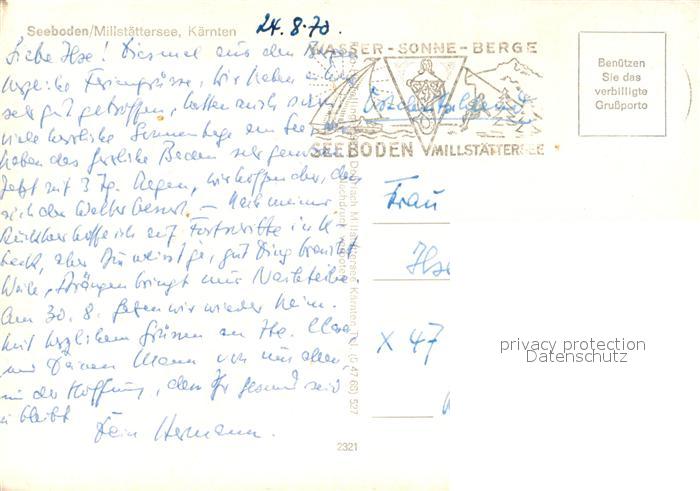 Seeboden/Millstättersee, Kärnten
24.8.70.
Liebe Ilse! Diesmal aus den Bergen
herzliche Feriengrüsse, wir haben es
sehr gut getroffen, hatten auch schon
viele herrliche Sonnentage am See
haben das herrliche Baden sehr genossen
Jetzt seit 3 Tg. Regen, wir hoffen aber, dass
sich das Wetter bessert. – Nach meiner
Rückkehr hoffe ich auf Fortschritte in
aber Du weisst ja, gut Ding braucht
Weile, Drängen bringt nur Nachteile.
Am 30. 8. fahren wir wieder heim.
Mit herzlichen Grüssen an
und Deinen Mann von uns allen,
in der Hoffnung, dass Ihr gesund seid
u bleibt
Dein Hermann.
WASSER - SONNE - BERGE
SEEBODEN MILLSTÄTTERSEE
Benützen
Sie das
verbilligte
Grußporto
Frau
Ilse
X 47
privacy protection
Datenschutz
2321